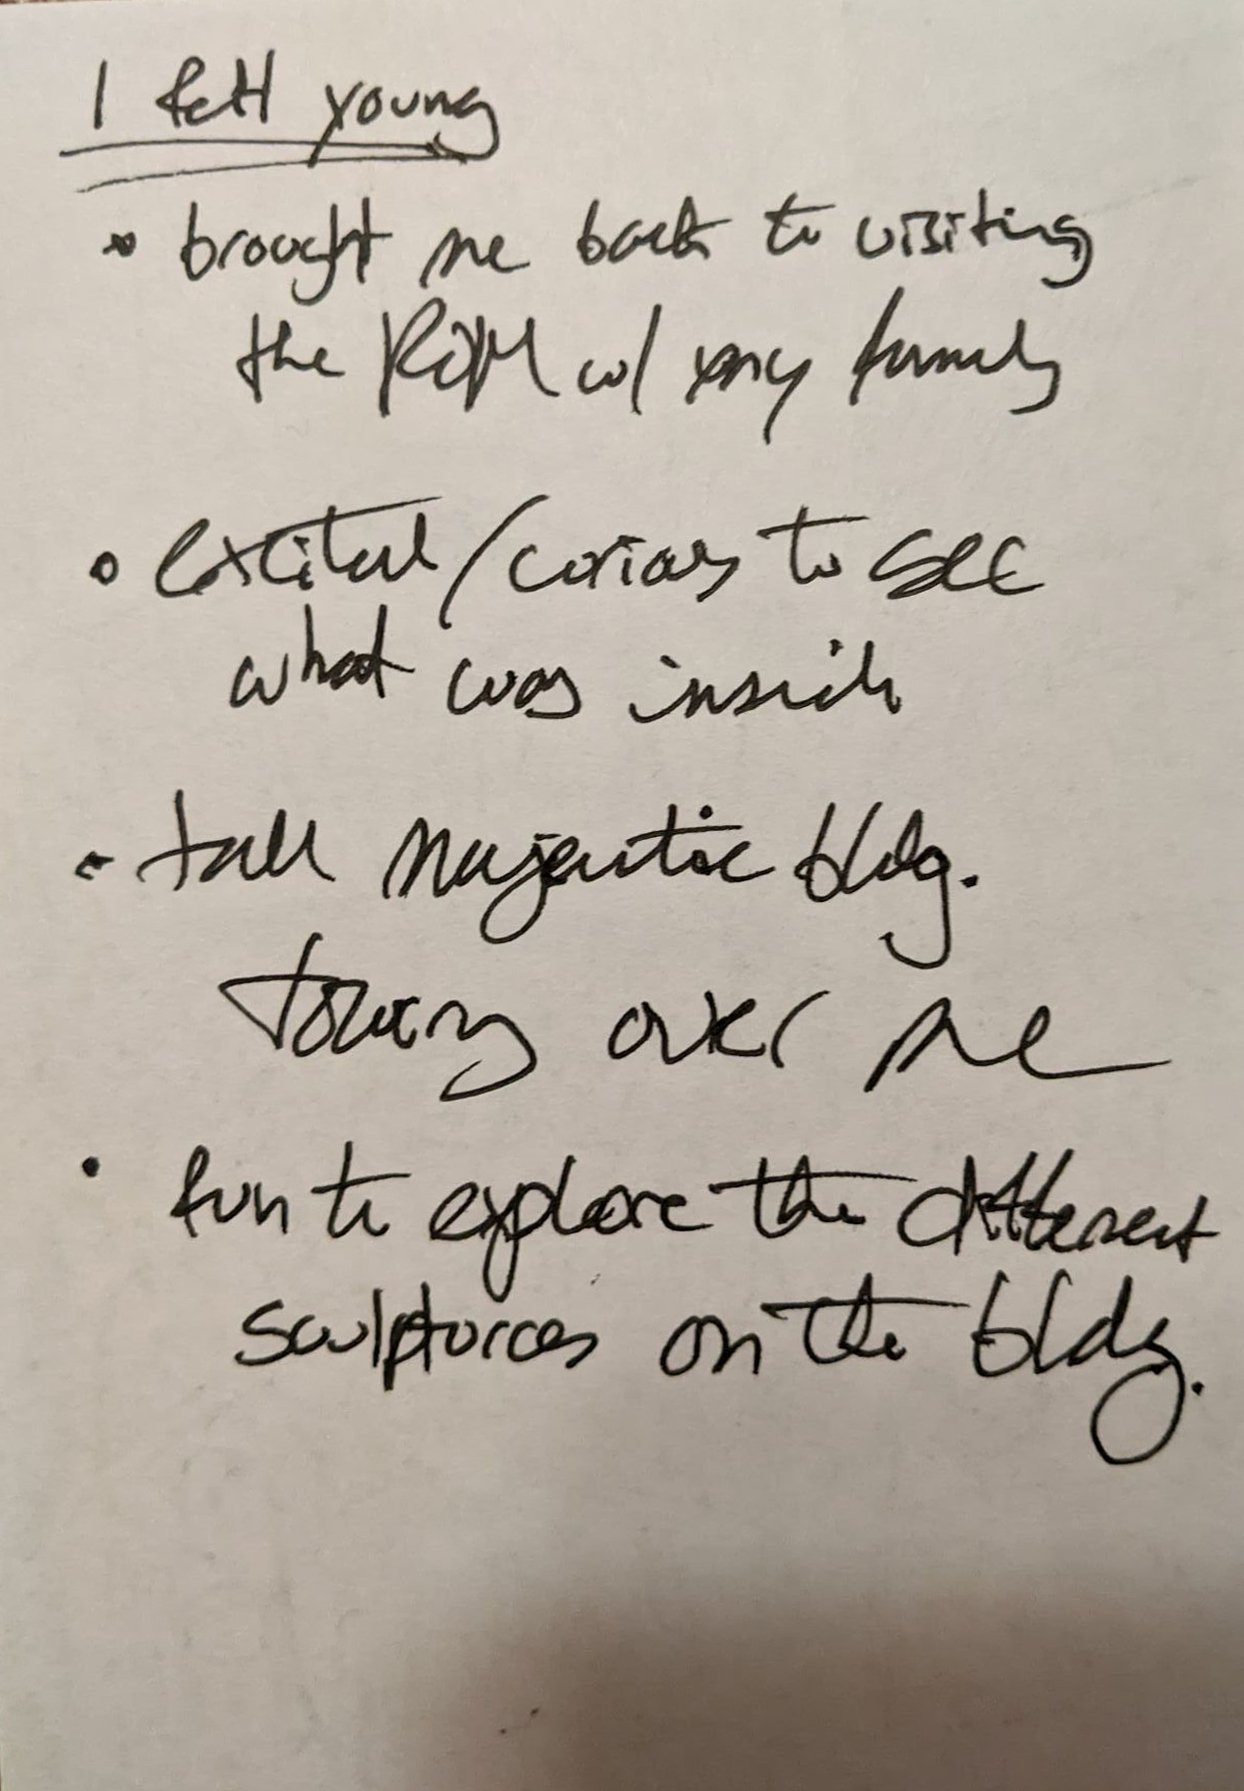 I felt young
• brought me back to visiting
the ROM w/ my family
• excited/curious to see
what was inside
• tall majestic bldg.
towering over me
• fun to explore the different
sculptures on the bldg.